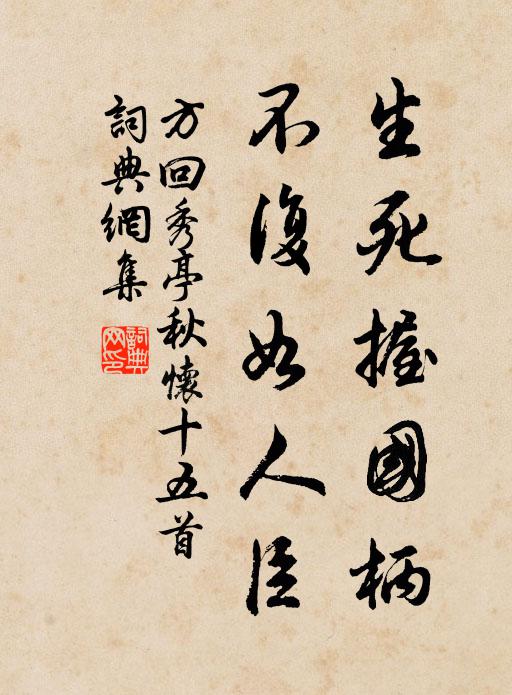 生死握國柄
不復如人臣
方回秀亭秋懷十五首
詞典網集
詞典網印